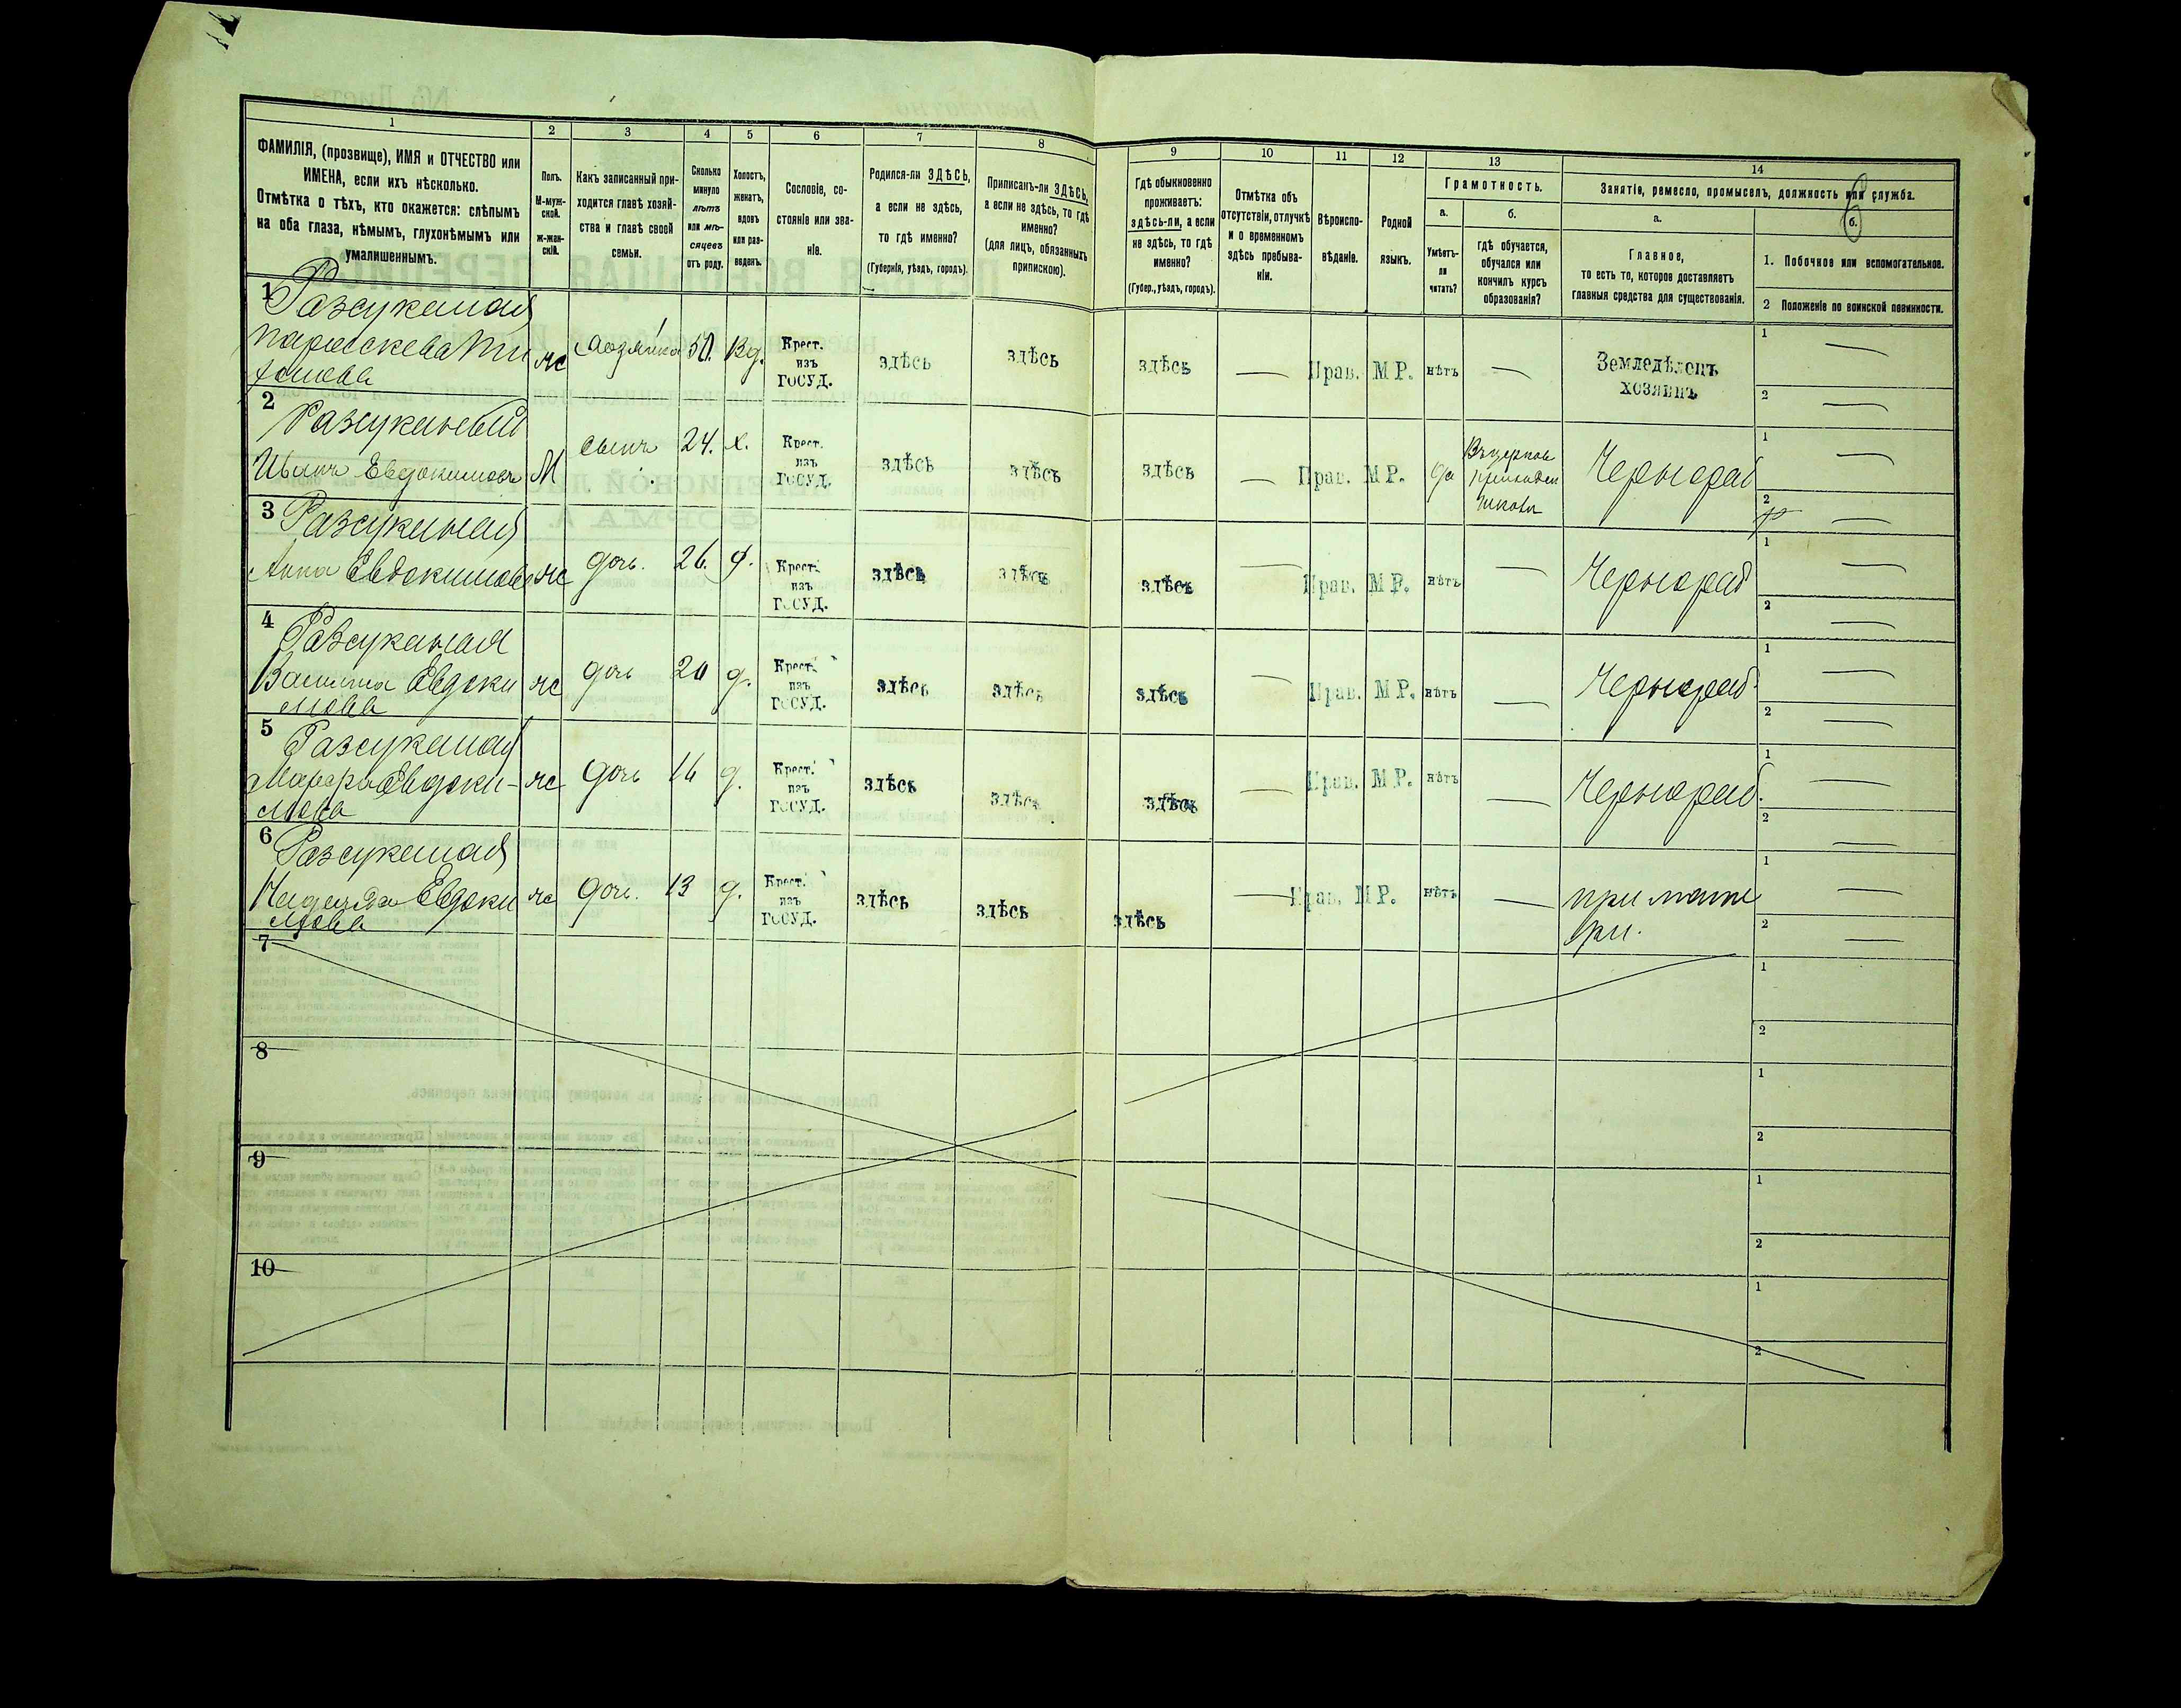 1
2
3
4
5
6
7
8
9
10
11
12
13
14
ФАМИЛІЯ, (прозвище), ИМЯ и ОТЧЕСТВО или
ИМЕНА, если ихъ нѣсколько.
Отмѣтка о тѣхъ, кто окажется: слѣпымъ
на оба глаза, нѣмымъ, глухонѣмымъ или
умалишеннымъ.
Полъ.
М-муж-
ской.
ж-жен-
скій.
Какъ записанный при-
ходится главѣ хозяй-
ства и главѣ своей
семьи.
Сколько
минуло
лѣтъ
или мѣ-
сяцевъ
отъ роду.
Холостъ,
женатъ,
вдовъ
или раз-
веденъ.
Сословіе, со-
стояніе или зва-
ніе.
Родился-ли ЗДѢСЬ,
а если не здѣсь,
то гдѣ именно?
(Губернія, уѣздъ, городъ).
Приписанъ-ли ЗДѢСЬ,
а если не здѣсь, то гдѣ
именно?
(для лицъ, обязанныхъ
припискою).
Гдѣ обыкновенно
проживаетъ:
здѣсь-ли, а если
не здѣсь, то гдѣ
именно?
(Губер., уѣздъ, городъ).
Отмѣтка объ
отсутствіи, отлучкѣ
и о временномъ
здѣсь пребыва-
ніи.
Вѣроиспо-
вѣданіе.
Родной
языкъ.
Грамотность.
а.
Умѣетъ-
ли
читать?
б.
гдѣ обучается,
обучался или
кончилъ курсъ
образованія?
Занятіе, ремесло, промыселъ, должность или служба.
а.
Главное,
то есть то, которое доставляетъ
главныя средства для существованія.
б.
6
1. Побочное или вспомогательное.
2 Положеніе по воинской повинности.
1
Разсуканая
Параскева Ти
хонова
ж
хозяйка 50. Вд.
Крест.
изъ
ГОСУД.
здѣсь здѣсь здѣсь — Прав. М Р. нѣтъ —
Земледѣлецъ
хозяинъ
1 —
2 —
2
Разсуканый
Иванъ Евдокимовъ
М
сынъ 24. х.
Крест.
изъ
ГОСУД.
здѣсь здѣсь здѣсь — Прав. М Р. да
Въ церков
приходск
школѣ
Чернораб
1 —
2 —
3
Разсуканая
Анна Евдокимова
ж
дочь. 26. д.
Крест.
изъ
ГОСУД.
здѣсь здѣсь здѣсь — Прав. М Р. нѣтъ —
Чернораб
1 —
2 —
4
Разсуканая
Васшина Евдоки
мова
ж
дочь 20 д.
Крест.
изъ
ГОСУД.
здѣсь здѣсь здѣсь — Прав. М Р. нѣтъ —
Чернораб.
1 —
2 —
5
Разсуканая
Мавра Евдоки-
мова
ж
дочь 16 д.
Крест.
изъ
ГОСУД.
здѣсь здѣсь здѣсь — Прав. М Р. нѣтъ —
Чернораб.
1 —
2 —
6
Разсуканая
Надежда Евдоки
мова
ж
дочь. 13 д.
Крест.
изъ
ГОСУД.
здѣсь здѣсь здѣсь — Прав. М Р. нѣтъ —
при мате
ри.
1 —
2 —
7
1
2
8
1
2
9
1
2
10
1
2